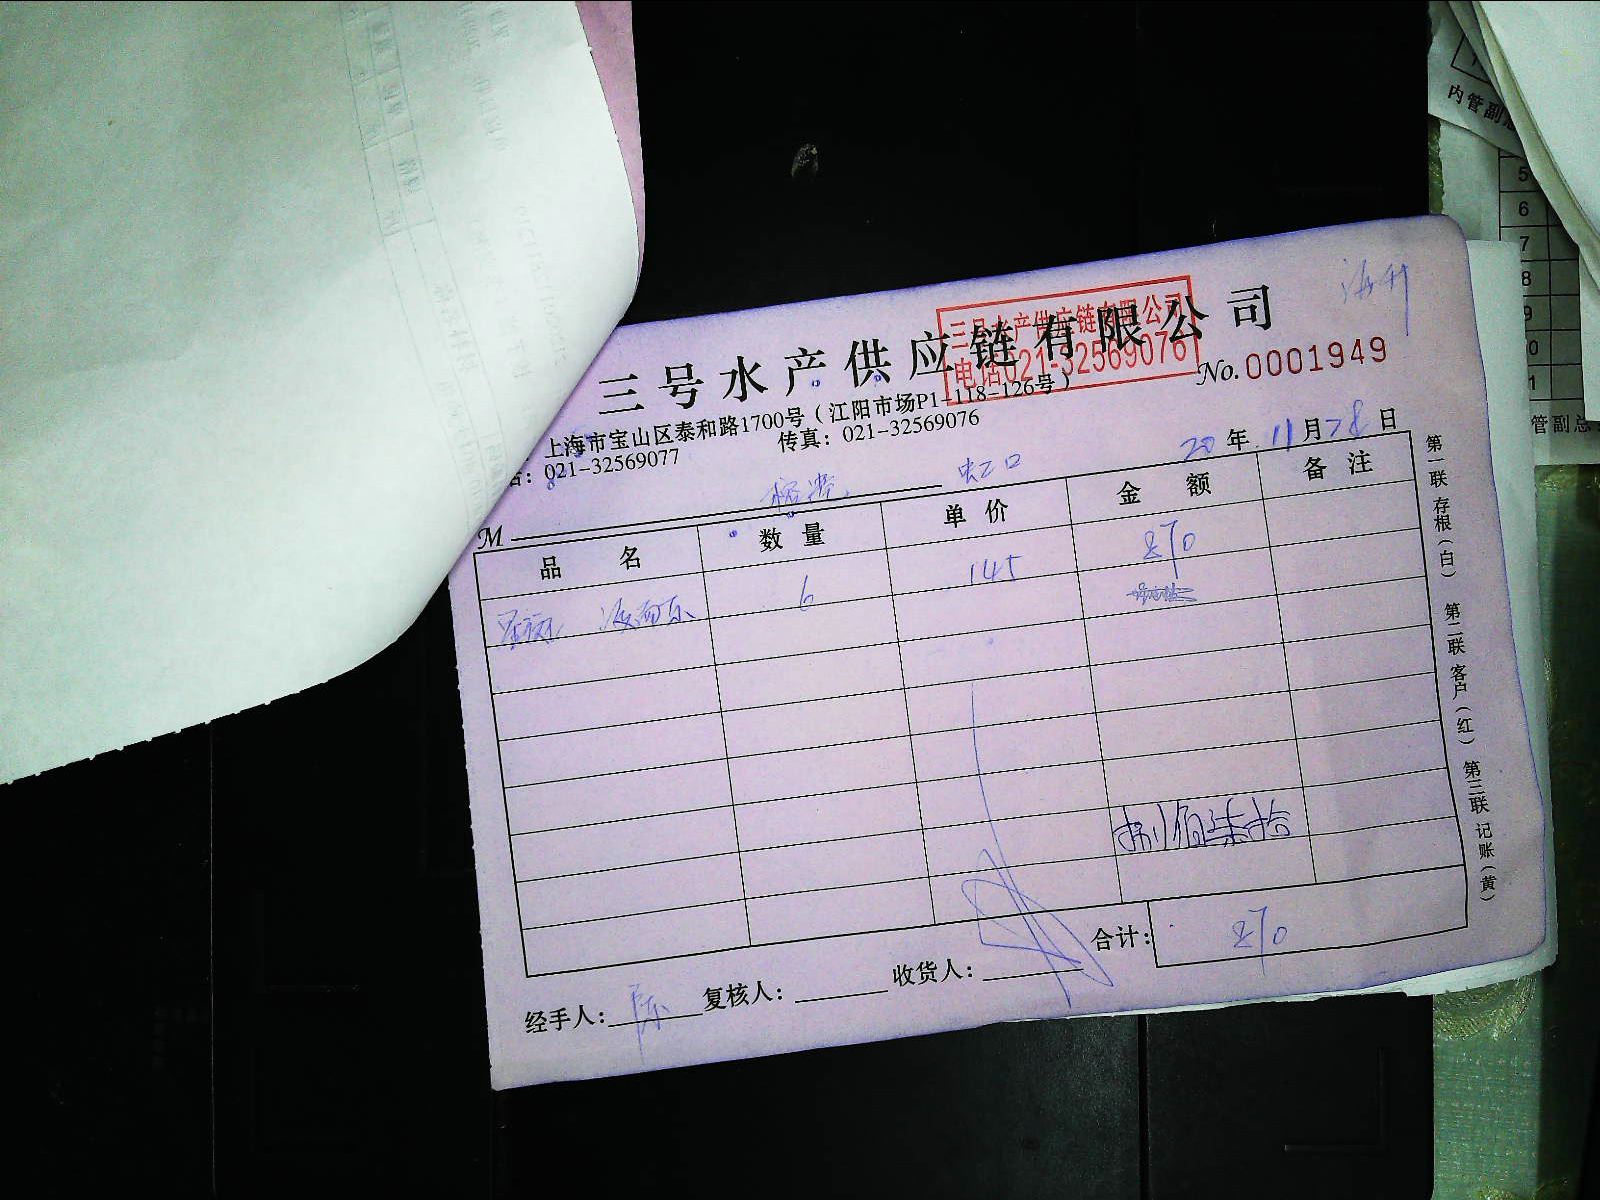 三号水产供应链有限公司
三号水产供应链有限公司
电话021-32569076
No.0001949
上海市宝山区泰和路1700号（江阳市场P1-118-126号）
话：021-32569077 传真：021-32569076
20年11月28日
M 虹口
品名 数量 单价 金额 备注
6 145 870
捌佰柒拾
合计：870
经手人：陈 复核人： 收货人：
第一联 存根（白） 第二联 客户（红） 第三联 记账（黄）
内管副总
5
6
7
8
9
管副总